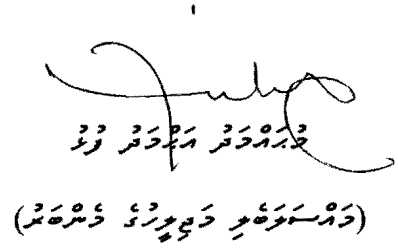 މުޙައްމަދު އަޙްމަދު ފުޅު
(މައްސަލަބެލި މަޖިލީހުގެ މެންބަރު)